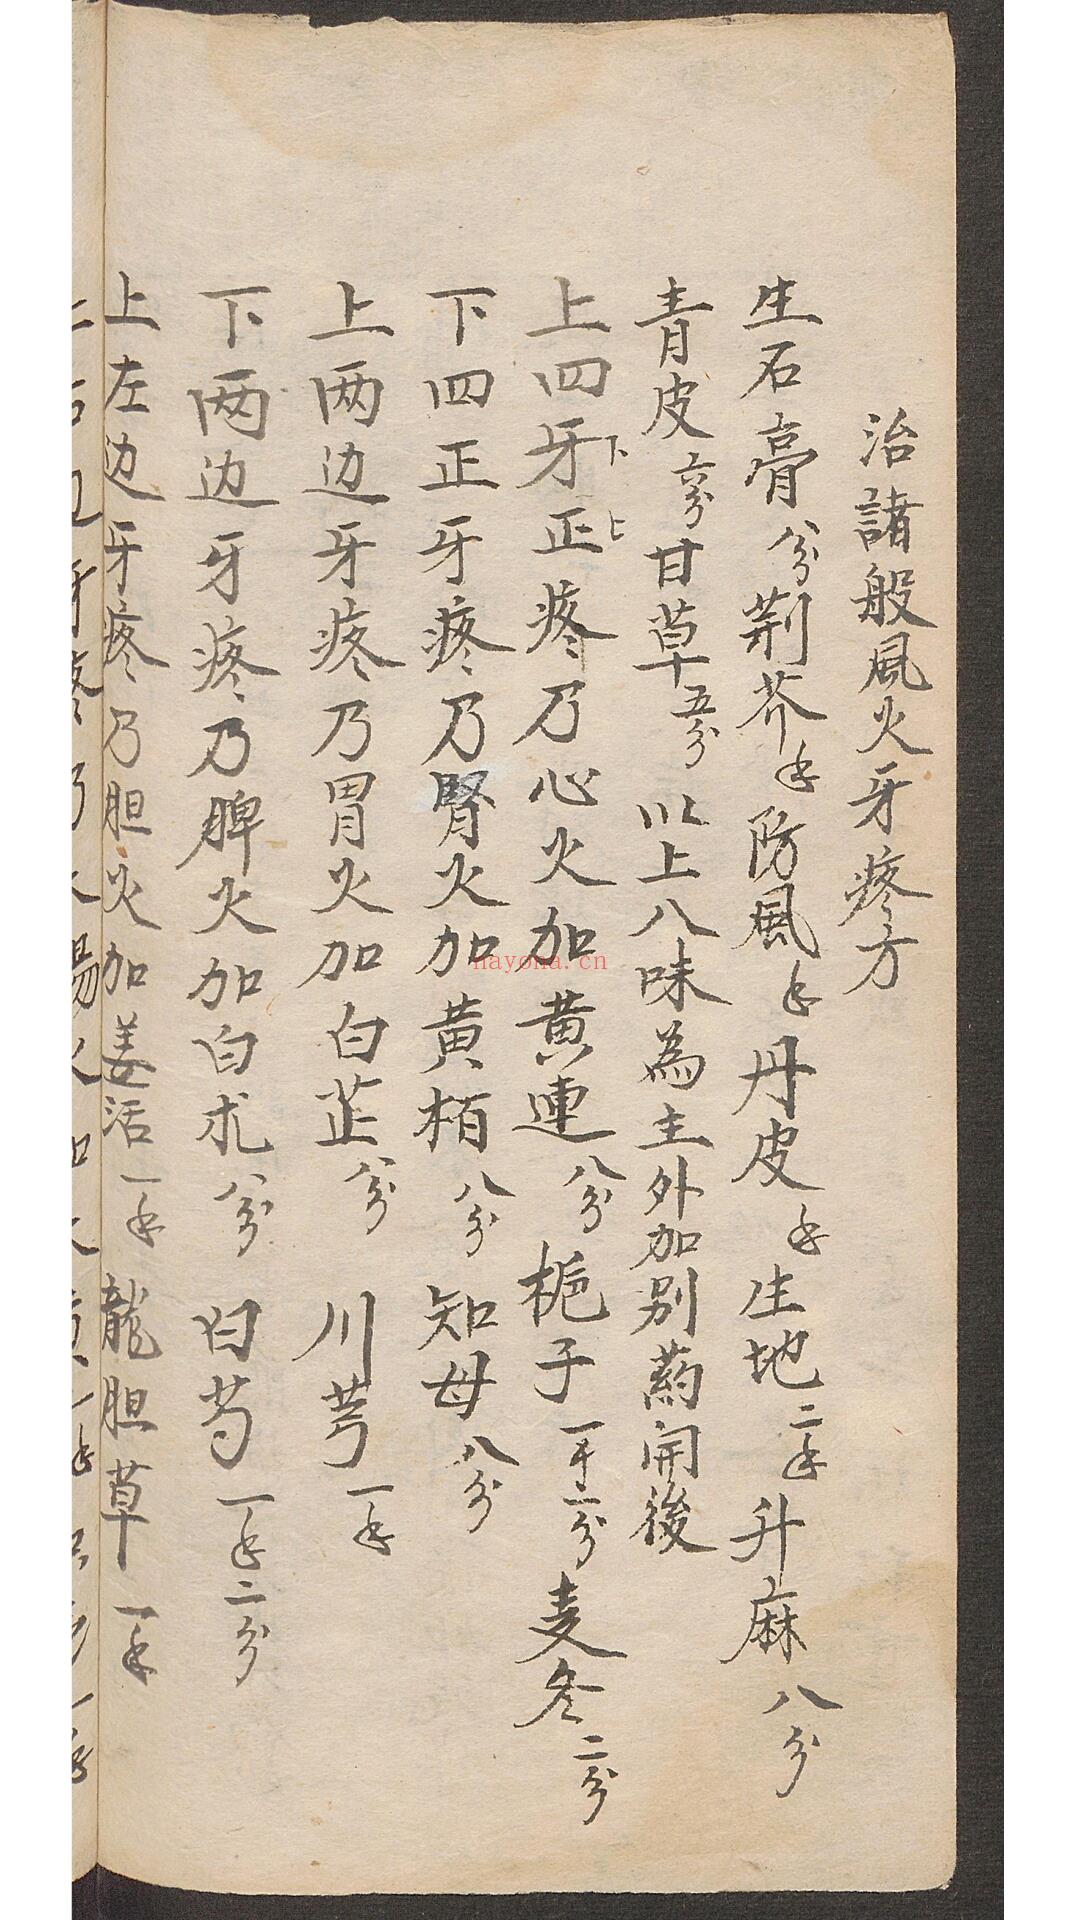 治諸般風火牙疼方
生石膏八分荆芥𠆩防風𠆩丹皮𠆩生地二𠆩升麻八分
青皮六分甘草五分以上八味為主外加别葯開後
上四牙下正上疼乃心火加黄連八分栀子一𠆩二分麦冬二分
下四正牙疼乃腎火加黄栢八分知母八分
上两边牙疼乃胃火加白芷八分川芎一𠆩
下两边牙疼乃脾火加白朮八分白芍一𠆩二分
上左边牙疼乃胆火加姜活一𠆩龍胆草一𠆩
hayona.cn